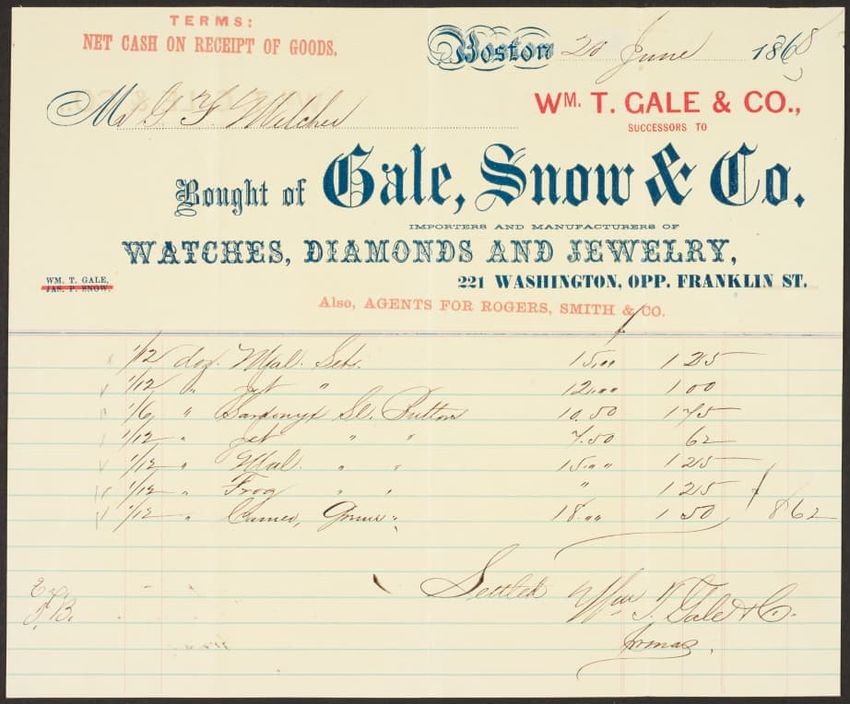 TERMS:
NET CASH ON RECEIPT OF GOODS.
Boston 20 June 1868
Mr G. F. Melcher
WM. T. GALE & CO.,
SUCCESSORS TO
Bought of Gale, Snow & Co.
IMPORTERS AND MANUFACTURERS OF
WATCHES, DIAMONDS AND JEWELRY,
WM. T. GALE,
JAS. P. SNOW.
221 WASHINGTON, OPP. FRANKLIN ST.
Also, AGENTS FOR ROGERS, SMITH & CO.
1/12 doz. Mal. Sets. 15.00 1 25
1/12 " Jet " 12.00 1 00
1/6 " Sardonyx Sl. Button 10.50 1 75
1/12 " Jet " " 7.50 62
1/12 " Mal. " " 15.00 1 25
1/12 " Frog " " " 1 25
1/12 " Cameo, " 18.00 1 50 8 62
Settled Wm T. Gale & Co.